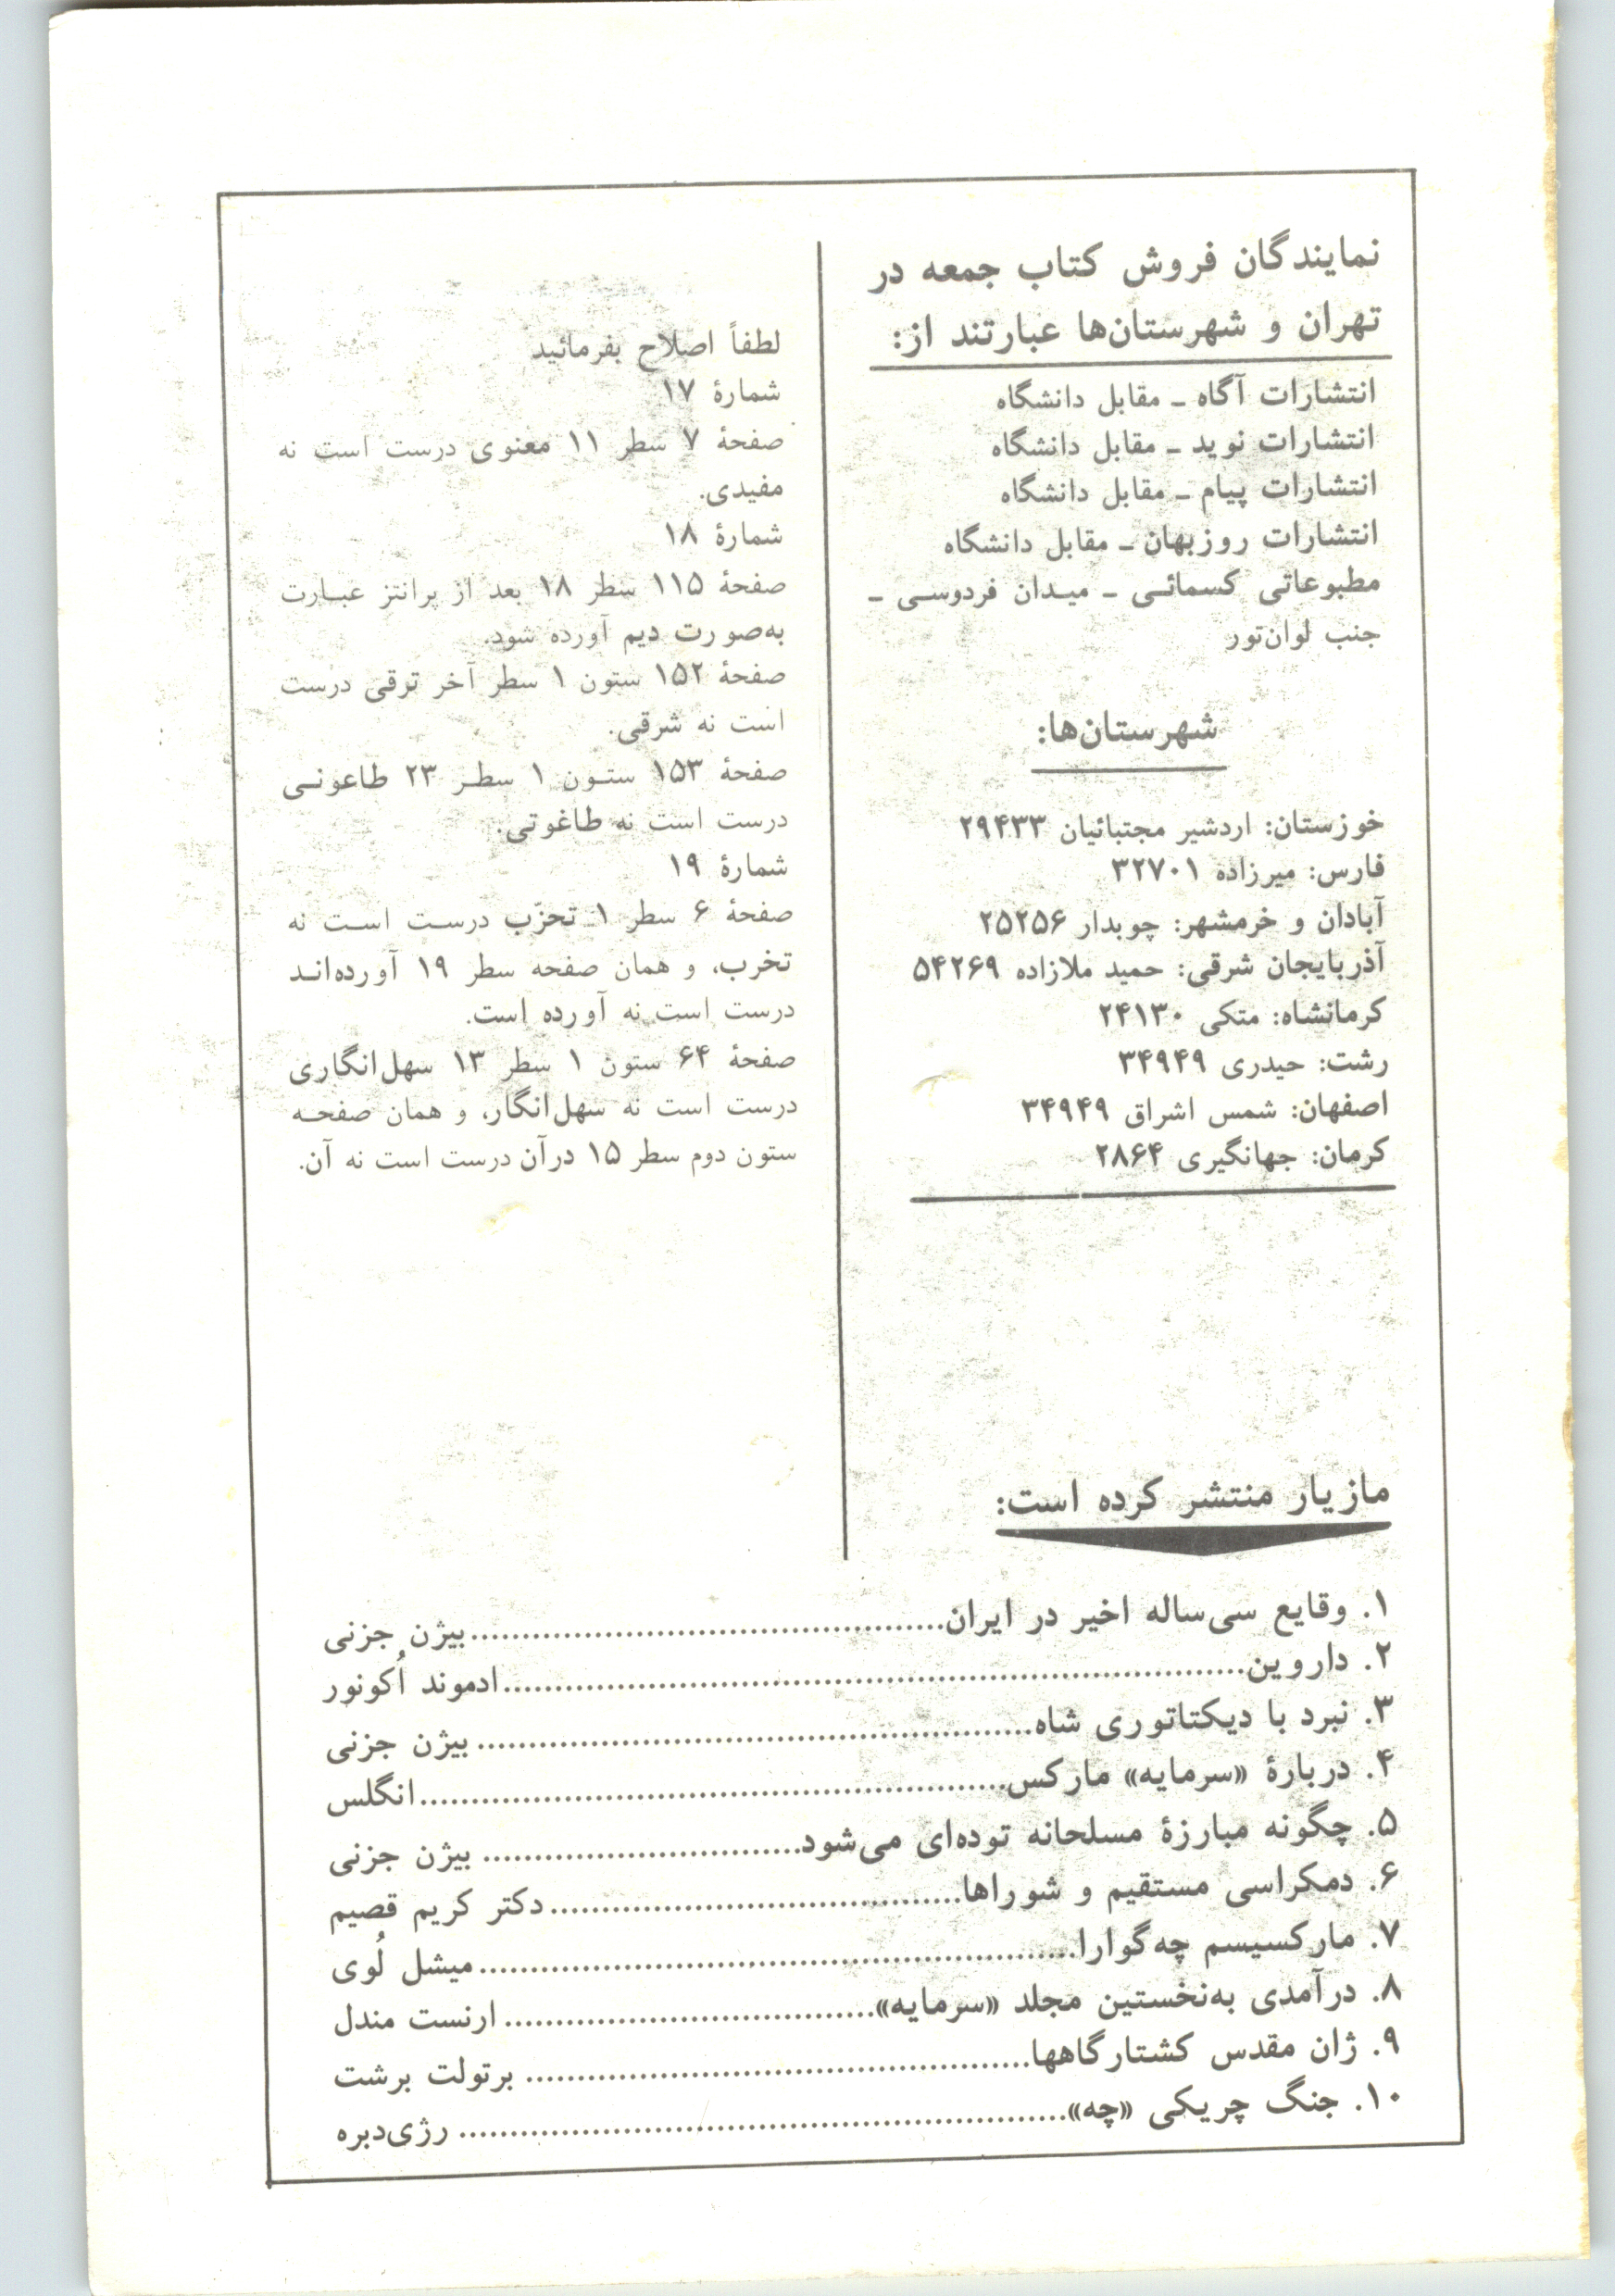 نمایندگان فروش کتاب جمعه در
تهران و شهرستان‌ها عبارتند از:
انتشارات آگاه ـ مقابل دانشگاه
انتشارات نوید ـ مقابل دانشگاه
انتشارات پیام ـ مقابل دانشگاه
انتشارات روزبهان ـ مقابل دانشگاه
مطبوعاتی کسمائی ـ میدان فردوسی ـ
جنب لوان‌تور
شهرستان‌ها:
خوزستان: اردشیر مجتبائیان ۲۹۴۳۳
فارس: میرزاده ۳۲۷۰۱
آبادان و خرمشهر: چوبدار ۲۵۲۵۶
آذربایجان شرقی: حمید ملازاده ۵۴۲۶۹
کرمانشاه: متکی ۲۴۱۳۰
رشت: حیدری ۳۴۹۴۹
اصفهان: شمس اشراق ۳۴۹۴۹
کرمان: جهانگیری ۲۸۶۴
لطفاً اصلاح بفرمائید
شمارهٔ ۱۷
صفحهٔ ۷ سطر ۱۱ معنوی درست است نه
مفیدی.
شمارهٔ ۱۸
صفحهٔ ۱۱۵ سطر ۱۸ بعد از پرانتز عبارت
به‌صورت دیم آورده شود.
صفحهٔ ۱۵۲ ستون ۱ سطر آخر ترقی درست
است نه شرقی.
صفحهٔ ۱۵۳ ستون ۱ سطر ۲۳ طاعونی
درست است نه طاغوتی.
شمارهٔ ۱۹
صفحهٔ ۶ سطر ۱ تحزّب درست است نه
تخرب، و همان صفحه سطر ۱۹ آورده‌اند
درست است نه آورده است.
صفحهٔ ۶۴ ستون ۱ سطر ۱۳ سهل‌انگاری
درست است نه سهل‌انگار، و همان صفحه
ستون دوم سطر ۱۵ درآن درست است نه آن.
مازیار منتشر کرده است:
۱. وقایع سی‌ساله اخیر در ایران..........بیژن جزنی
۲. داروین..........ادموند اُکونور
۳. نبرد با دیکتاتوری شاه..........بیژن جزنی
۴. دربارهٔ «سرمایه» مارکس..........انگلس
۵. چگونه مبارزهٔ مسلحانه توده‌ای می‌شود..........بیژن جزنی
۶. دمکراسی مستقیم و شوراها..........دکتر کریم قصیم
۷. مارکسیسم چه‌گوارا..........میشل لُوی
۸. درآمدی به‌نخستین مجلد «سرمایه»..........ارنست مندل
۹. ژان مقدس کشتارگاهها..........برتولت برشت
۱۰. جنگ چریکی «چه»..........رژی‌دبره